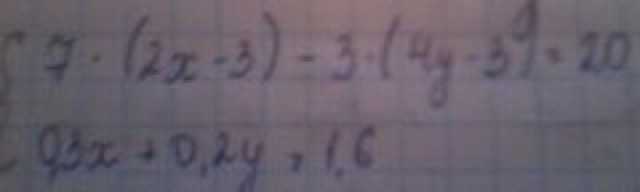 7 · (2x - 3) - 3 · (4y - 3) = 20
0,3x + 0,2y = 1,6